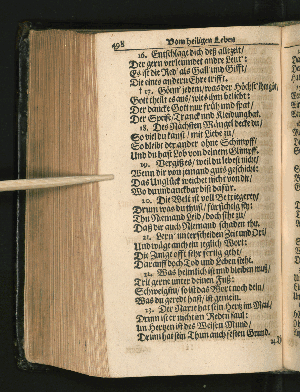 498 Vom heiligen Leben
16. Entschlage dich deß allezeit/
Der gern verleumdet andre Leut':
Es ist die Red' als Gall und Gifft/
Die eines andern Ehre trifft.
17. Gönn' jedem/ was der Höchst' ihm gönt,
Gott theilt es aus/ wies ihm beliebt:
Der dancke Gott nur früh und spat/
Der Speiß/ Tranck und Kleidung hat.
18. Des Nächsten Mängel decke du/
So viel du kanst/ mit Liebe zu/
So bleibt der ander ohne Schimpff/
Und du hast Lob von deinem Glimpff.
19. Vergiß es/ weil du lebest nicht/
Wenn dir von jemand guts geschicht:
Das Unglück weichet nicht von dir/
Wo du undanckbar bist dafür.
20. Die Welt ist voll Betriegerey/
Drum was du thust/ fürsichtig sey:
Thu Niemand Leid/ doch siehe zu/
Daß dir auch Niemand schaden thu.
21. Lern' unterscheiden Zeit und Ort/
Und wäge auch ein jeglich Wort:
Die Zunge offt sehr fertig geht/
Darauff doch Tod und Leben steht.
22. Was heimlich ist und bleiben muß/
Tritt gerne unter deinen Fuß:
Schweigstu/ so ist das Wort noch dein/
Was du geredt hast/ ist gemein.
23. Der Narr hat sein Hertz im Maul/
Drum ist er nicht an Reden faul:
Im Hertzen ist des Weisen Mund/
Drum hat sein Thun auch festen Grund.